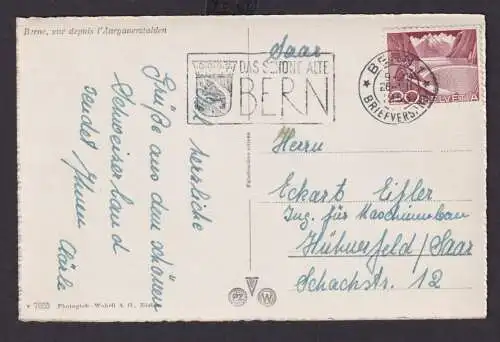 Berne, vue depuis l'Aargauerstalden
Saar
DAS SCHÖNE ALTE
BERN
BERN 1
BRIEFVERS.
20
HELVETIA
herzliche
Grüße aus dem schönen
Schweizerland
sendet Ihnen
Herrn
Eckart Eifler
Ing. für Maschinenbau
Hühnerfeld/Saar
Schachstr. 12
7655 Photoglob-Wehrli A. G., Zürich
PZ W